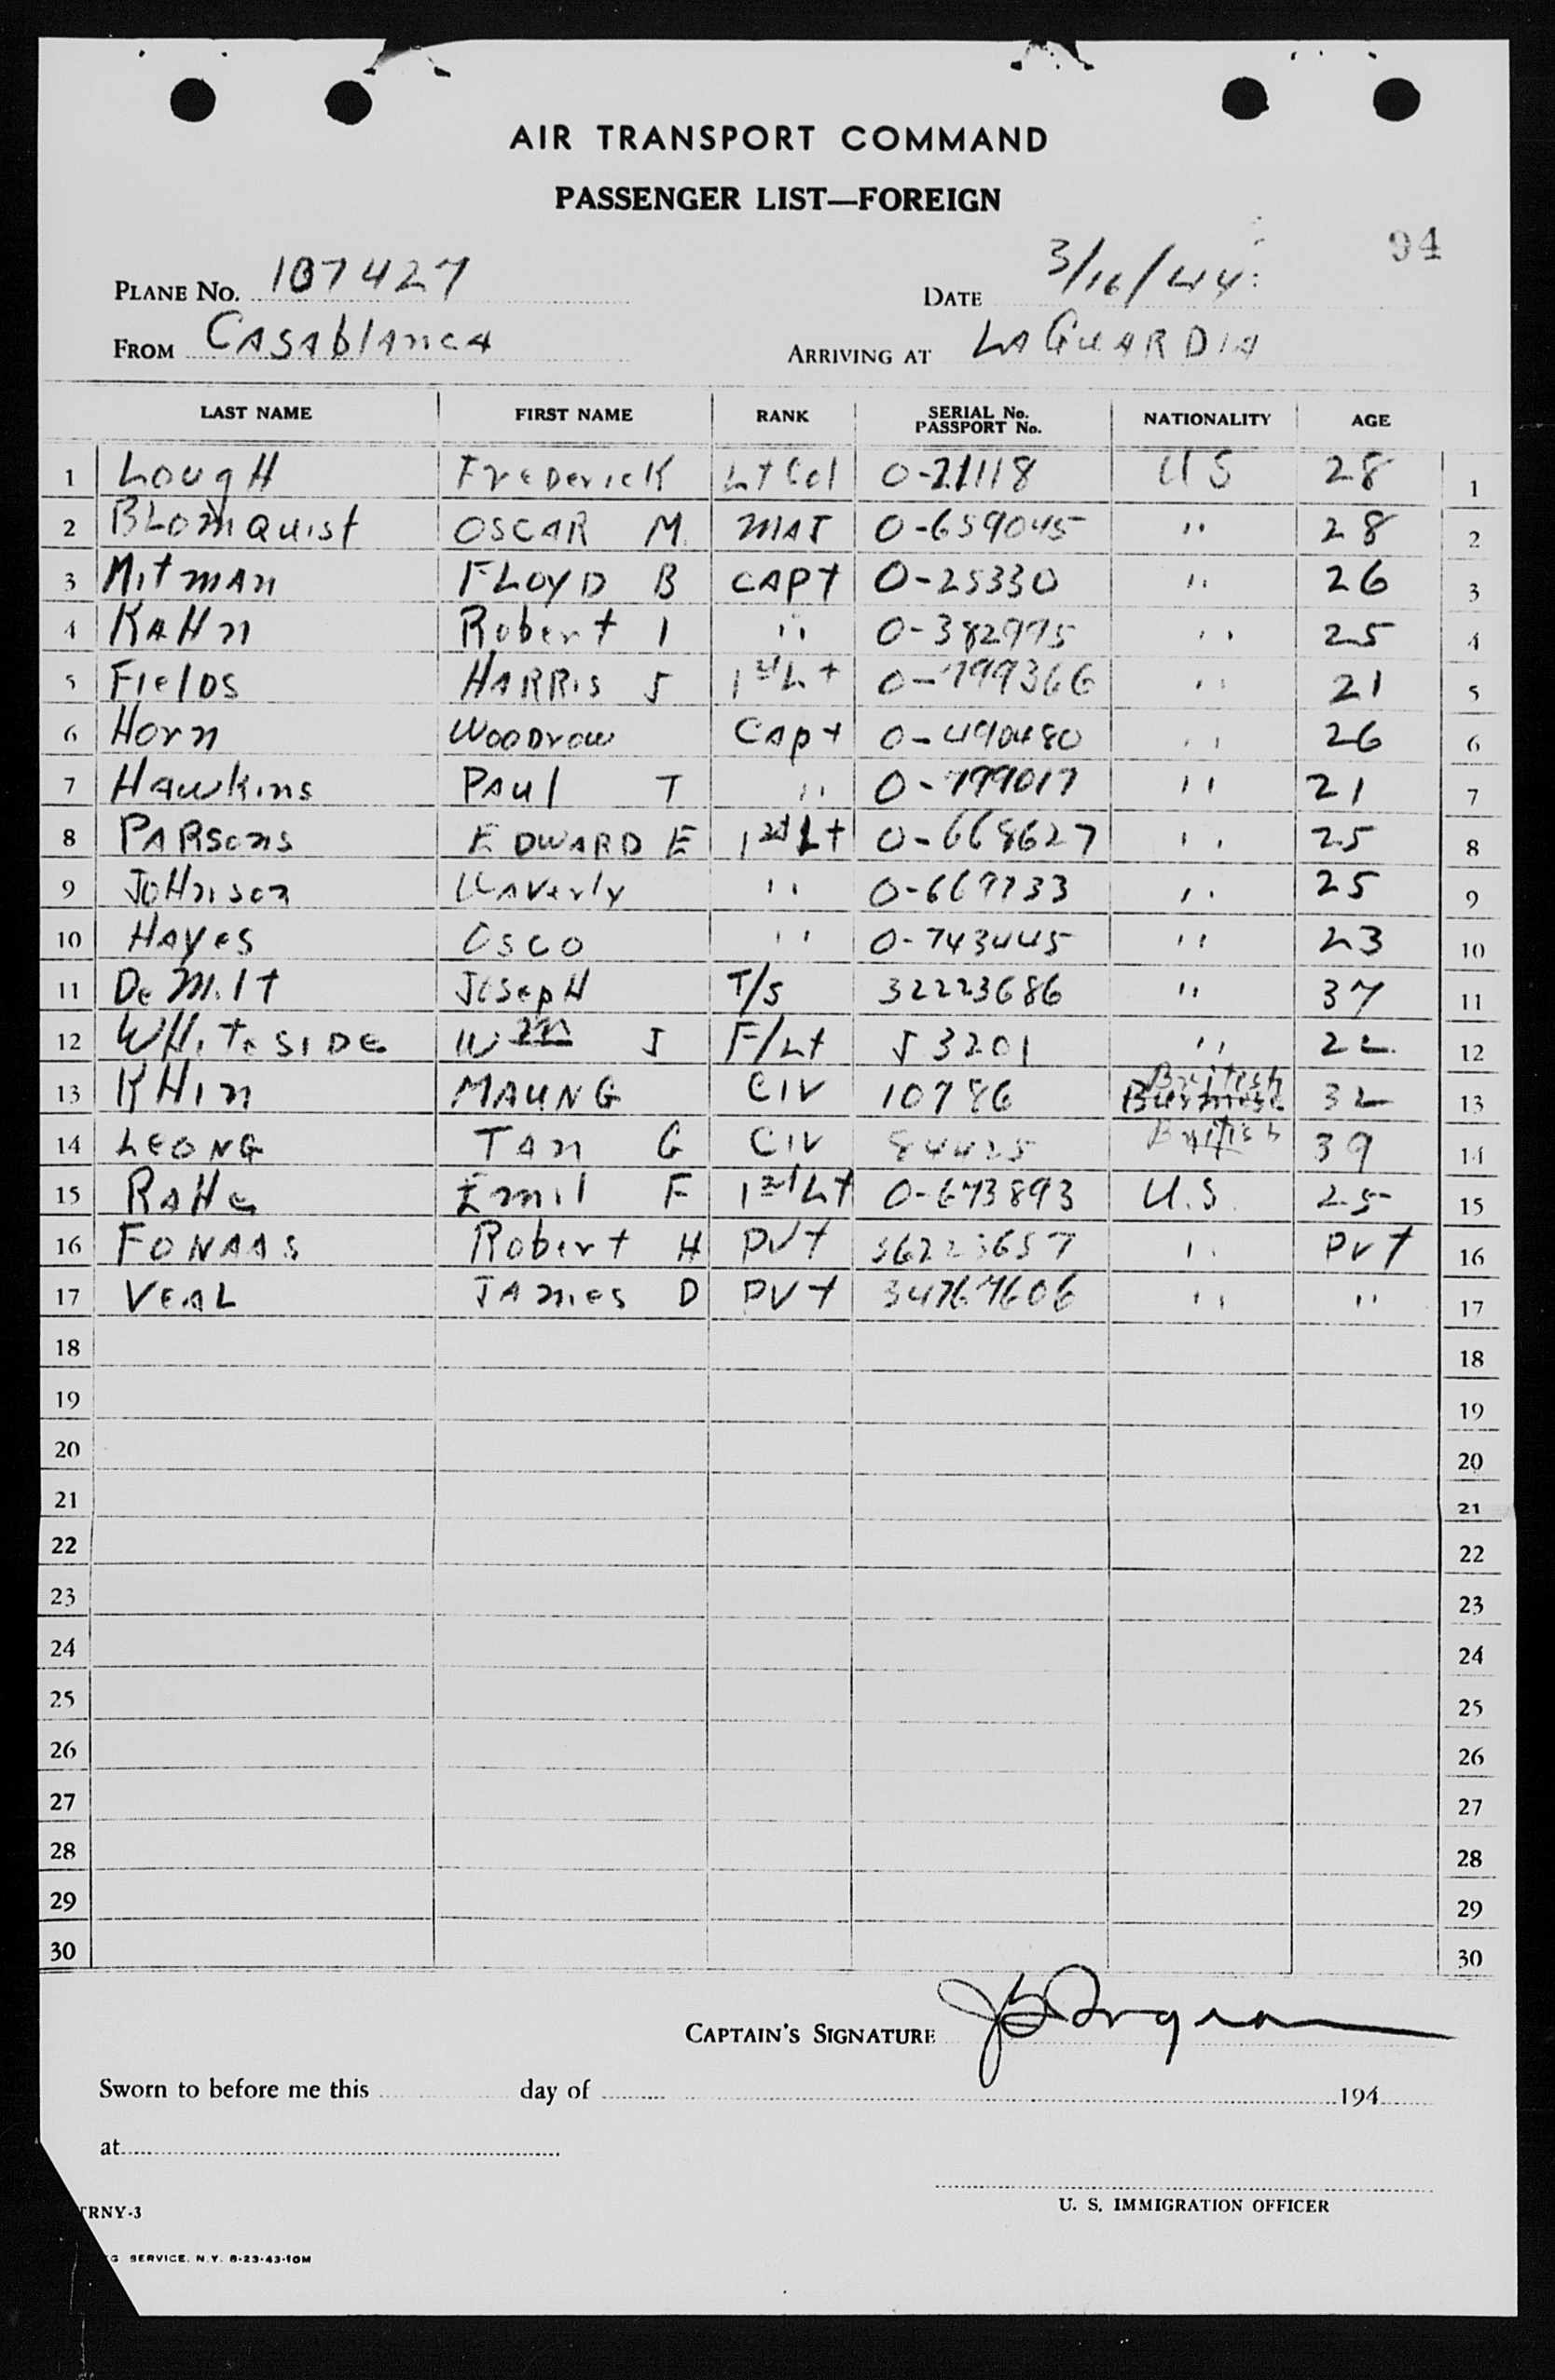 AIR TRANSPORT COMMAND
PASSENGER LIST—FOREIGN
94
PLANE No. 107427 DATE 3/16/44
FROM CASAblAncA ARRIVING AT LA GuARDIA
LAST NAME FIRST NAME RANK SERIAL No. PASSPORT No. NATIONALITY AGE
1 LougH FreDericK Lt Col 0-21118 US 28 1
2 BLomQuist OSCAR M. MAJ 0-659045 " 28 2
3 MitmAn FLOYD B CAPt 0-25330 " 26 3
4 KAHn Robert I " 0-382995 " 25 4
5 FielDs HARRis J 1st Lt 0-799366 " 21 5
6 Horn WooDrow CApt 0-490480 " 26 6
7 Hawkins PAul T " 0-799017 " 21 7
8 PARSons EDWARD E 1st Lt 0-668627 " 25 8
9 JoHnson WAverly " 0-669733 " 25 9
10 HAyes OSCO " 0-743445 " 23 10
11 De Milt JosepH T/S 32223686 " 37 11
12 WHiteSIDE Wm J F/Lt J 3201 " 22 12
13 KHin MAUNG CIV 10786 British Burmese 32 13
14 LEONG TAn G CIV 84425 British 39 14
15 RAHe Emil F 1st Lt 0-673893 U.S. 25 15
16 FONAAS Robert H PVt " PVt 16
17 VEAL JAmes D PVt 34767606 " " 17
18 18
19 19
20 20
21 21
22 22
23 23
24 24
25 25
26 26
27 27
28 28
29 29
30 30
CAPTAIN'S SIGNATURE
Sworn to before me this day of 194
at
U. S. IMMIGRATION OFFICER
RNY-3
SERVICE, N.Y. 8-23-43-10M